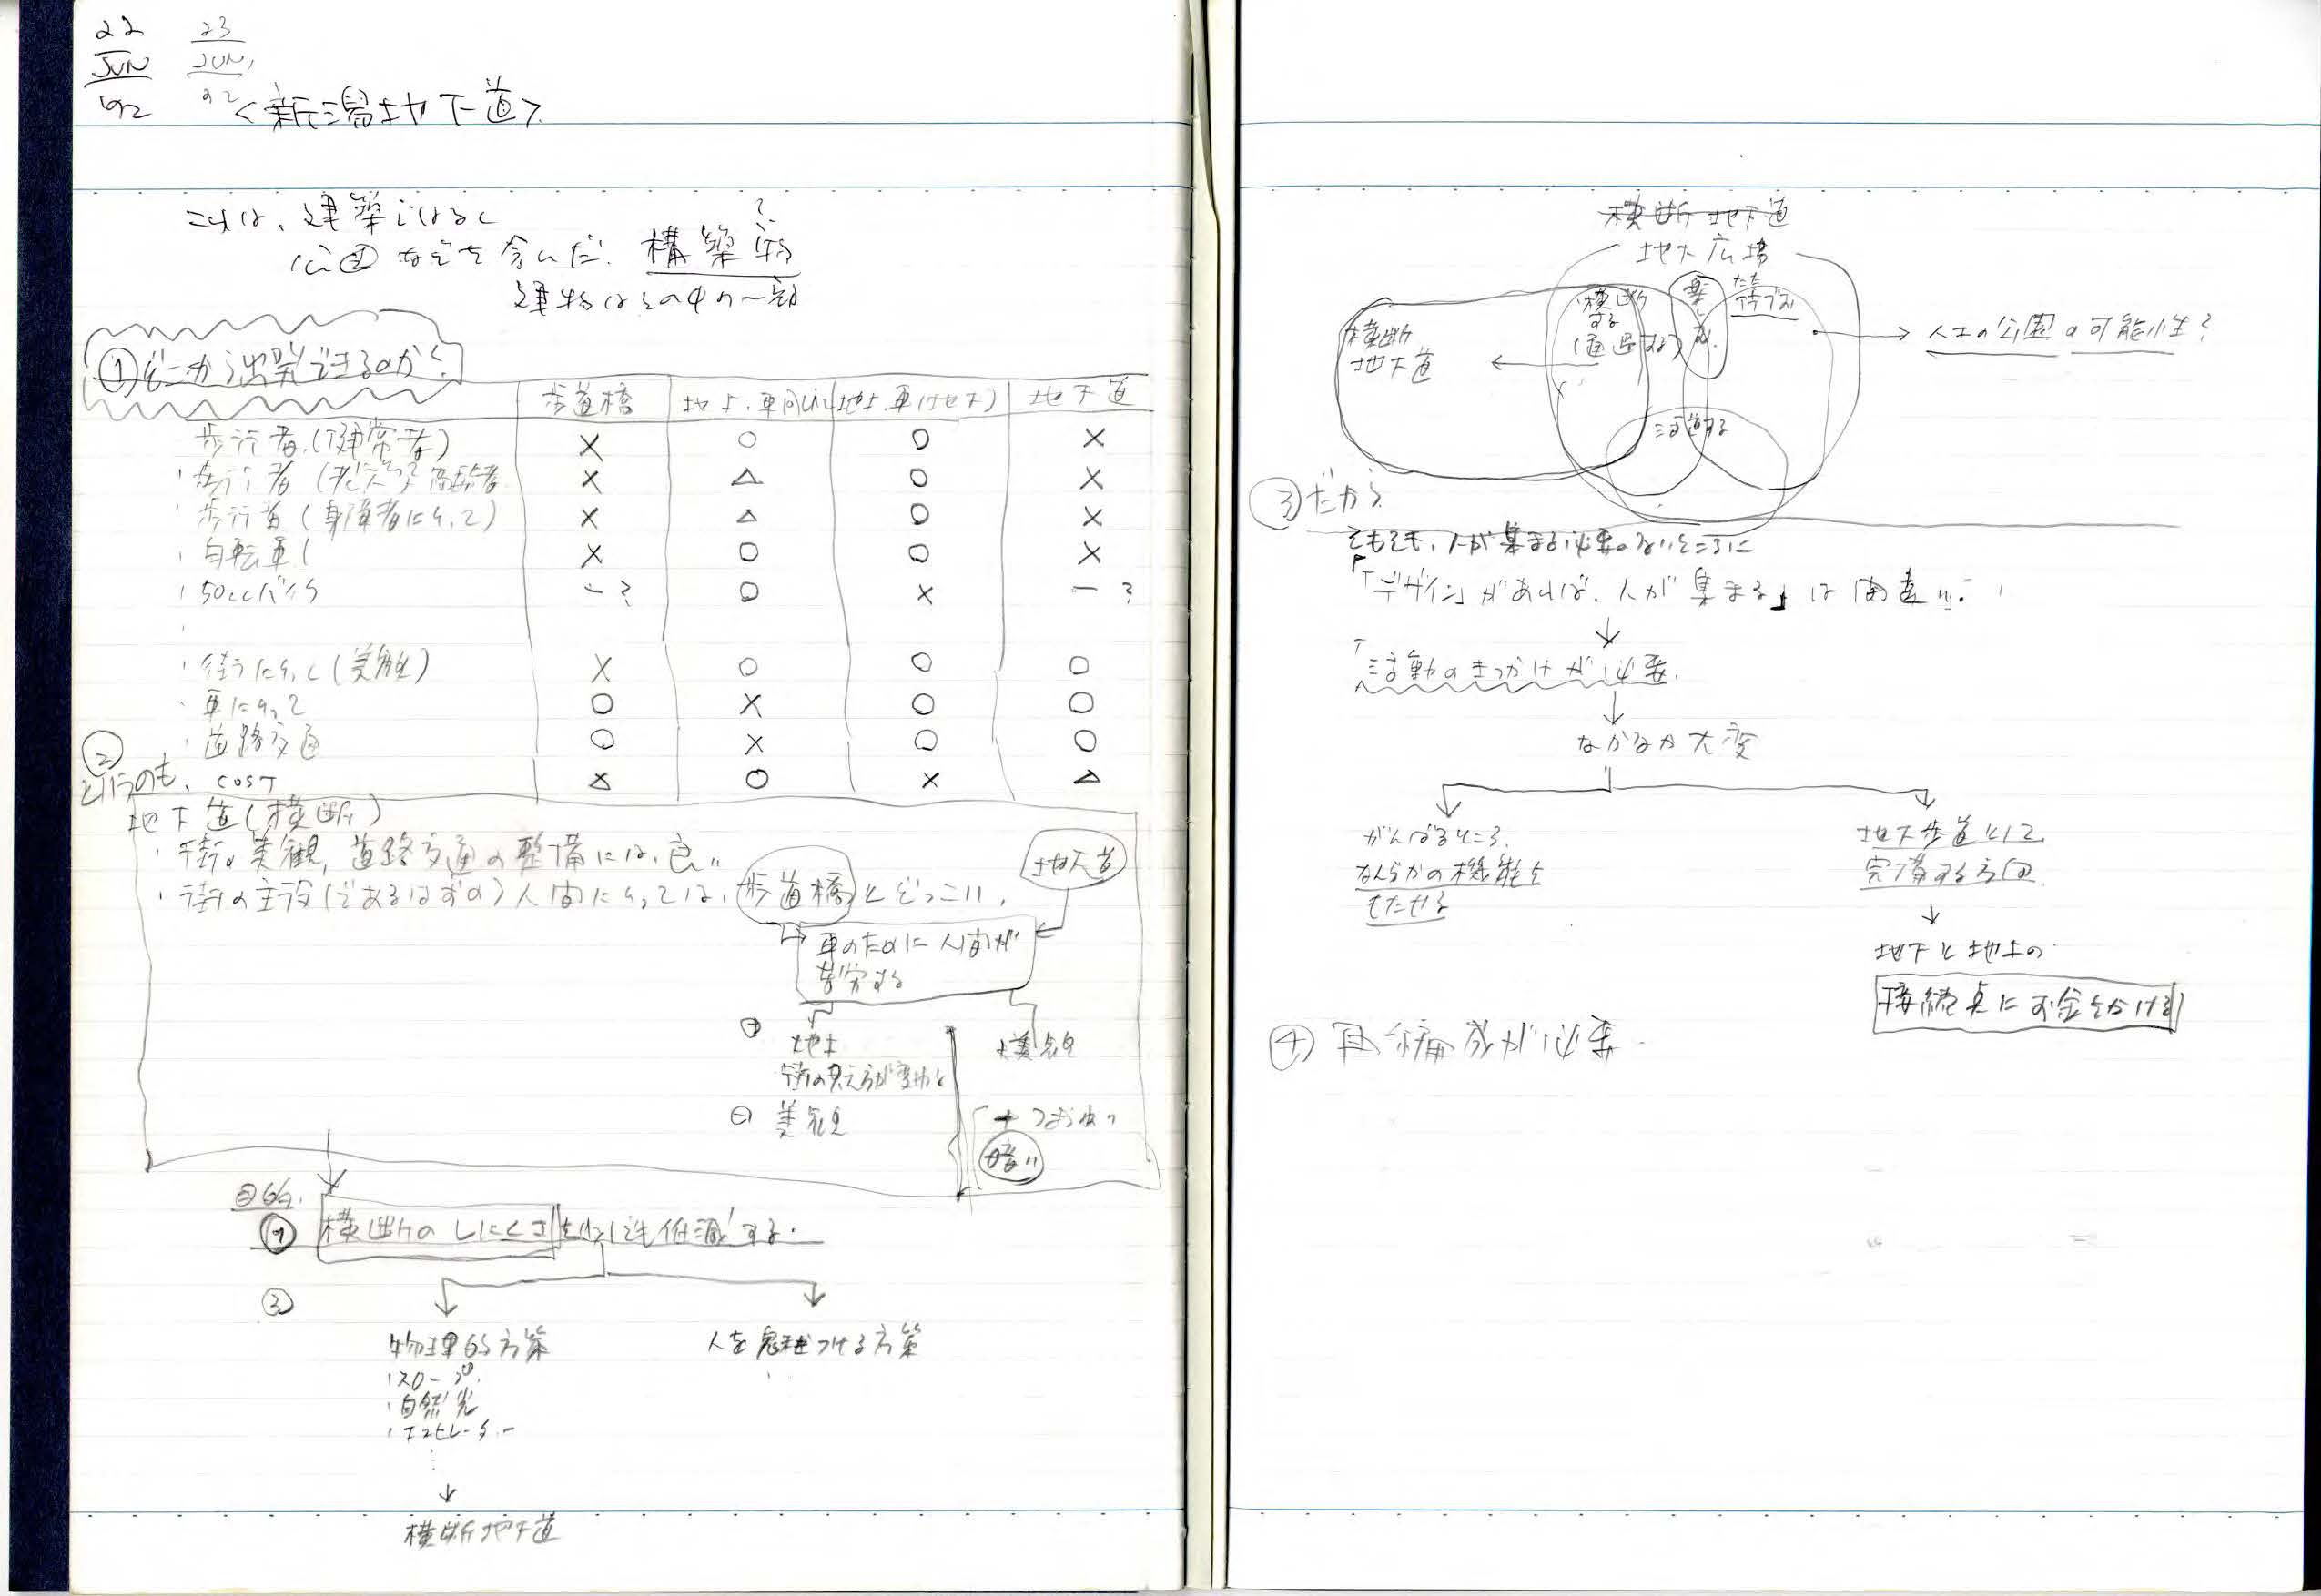 22 JUN '92
23 JUN, 92
<新潟地下道>
これは、建築ではなく
公園などを含んだ、構築的?
建物はその中の一部
①どこから出発できるのか?
歩道橋 地上、車同じ 地上、車(地下) 地下道
歩行者(健常者) × ○ ○ ×
・歩行者( 高齢者 × △ ○ ×
・歩行者(身障者にとって) × △ ○ ×
・自転車( × ○ ○ ×
・50ccバイク ー? ○ × ー?
・
・街にとって(美観) × ○ ○ ○
・車にとって ○ × ○ ○
・道路交通 ○ × ○ ○
②というのも、
cost △ ○ × △
地下道(横断)
・街の美観、道路交通の整備には、良い
・街の主役(であるはずの)人間にとっては、歩道橋とどっこい。
地下道
車のために人間が
苦労する
⊕ 地上
街の見え方が変わる
⊖ 美観
+美観
暗い
目的
横断のしにくさを少しでも低減する。
③
物理的方策
・スロープ
・自然光
・エスカレーター
↓
横断地下道
人を魅きつける方策
横断地下道
地下広場
横断地下道
横断する(通過する)
楽しむ
ただ
活動する
→人工の公園の可能性?
③だから
そもそも、人が集まる必要のないところに
「デザイン」があれば、人が集まる」は間違い。
↓
「活動のきっかけが必要。
↓
なかなか大変
がんばるところ。
なんらかの機能を
もたせる
地下歩道として
完備する方向
↓
地下と地上の
接続点にお金をかける
④再編成が必要